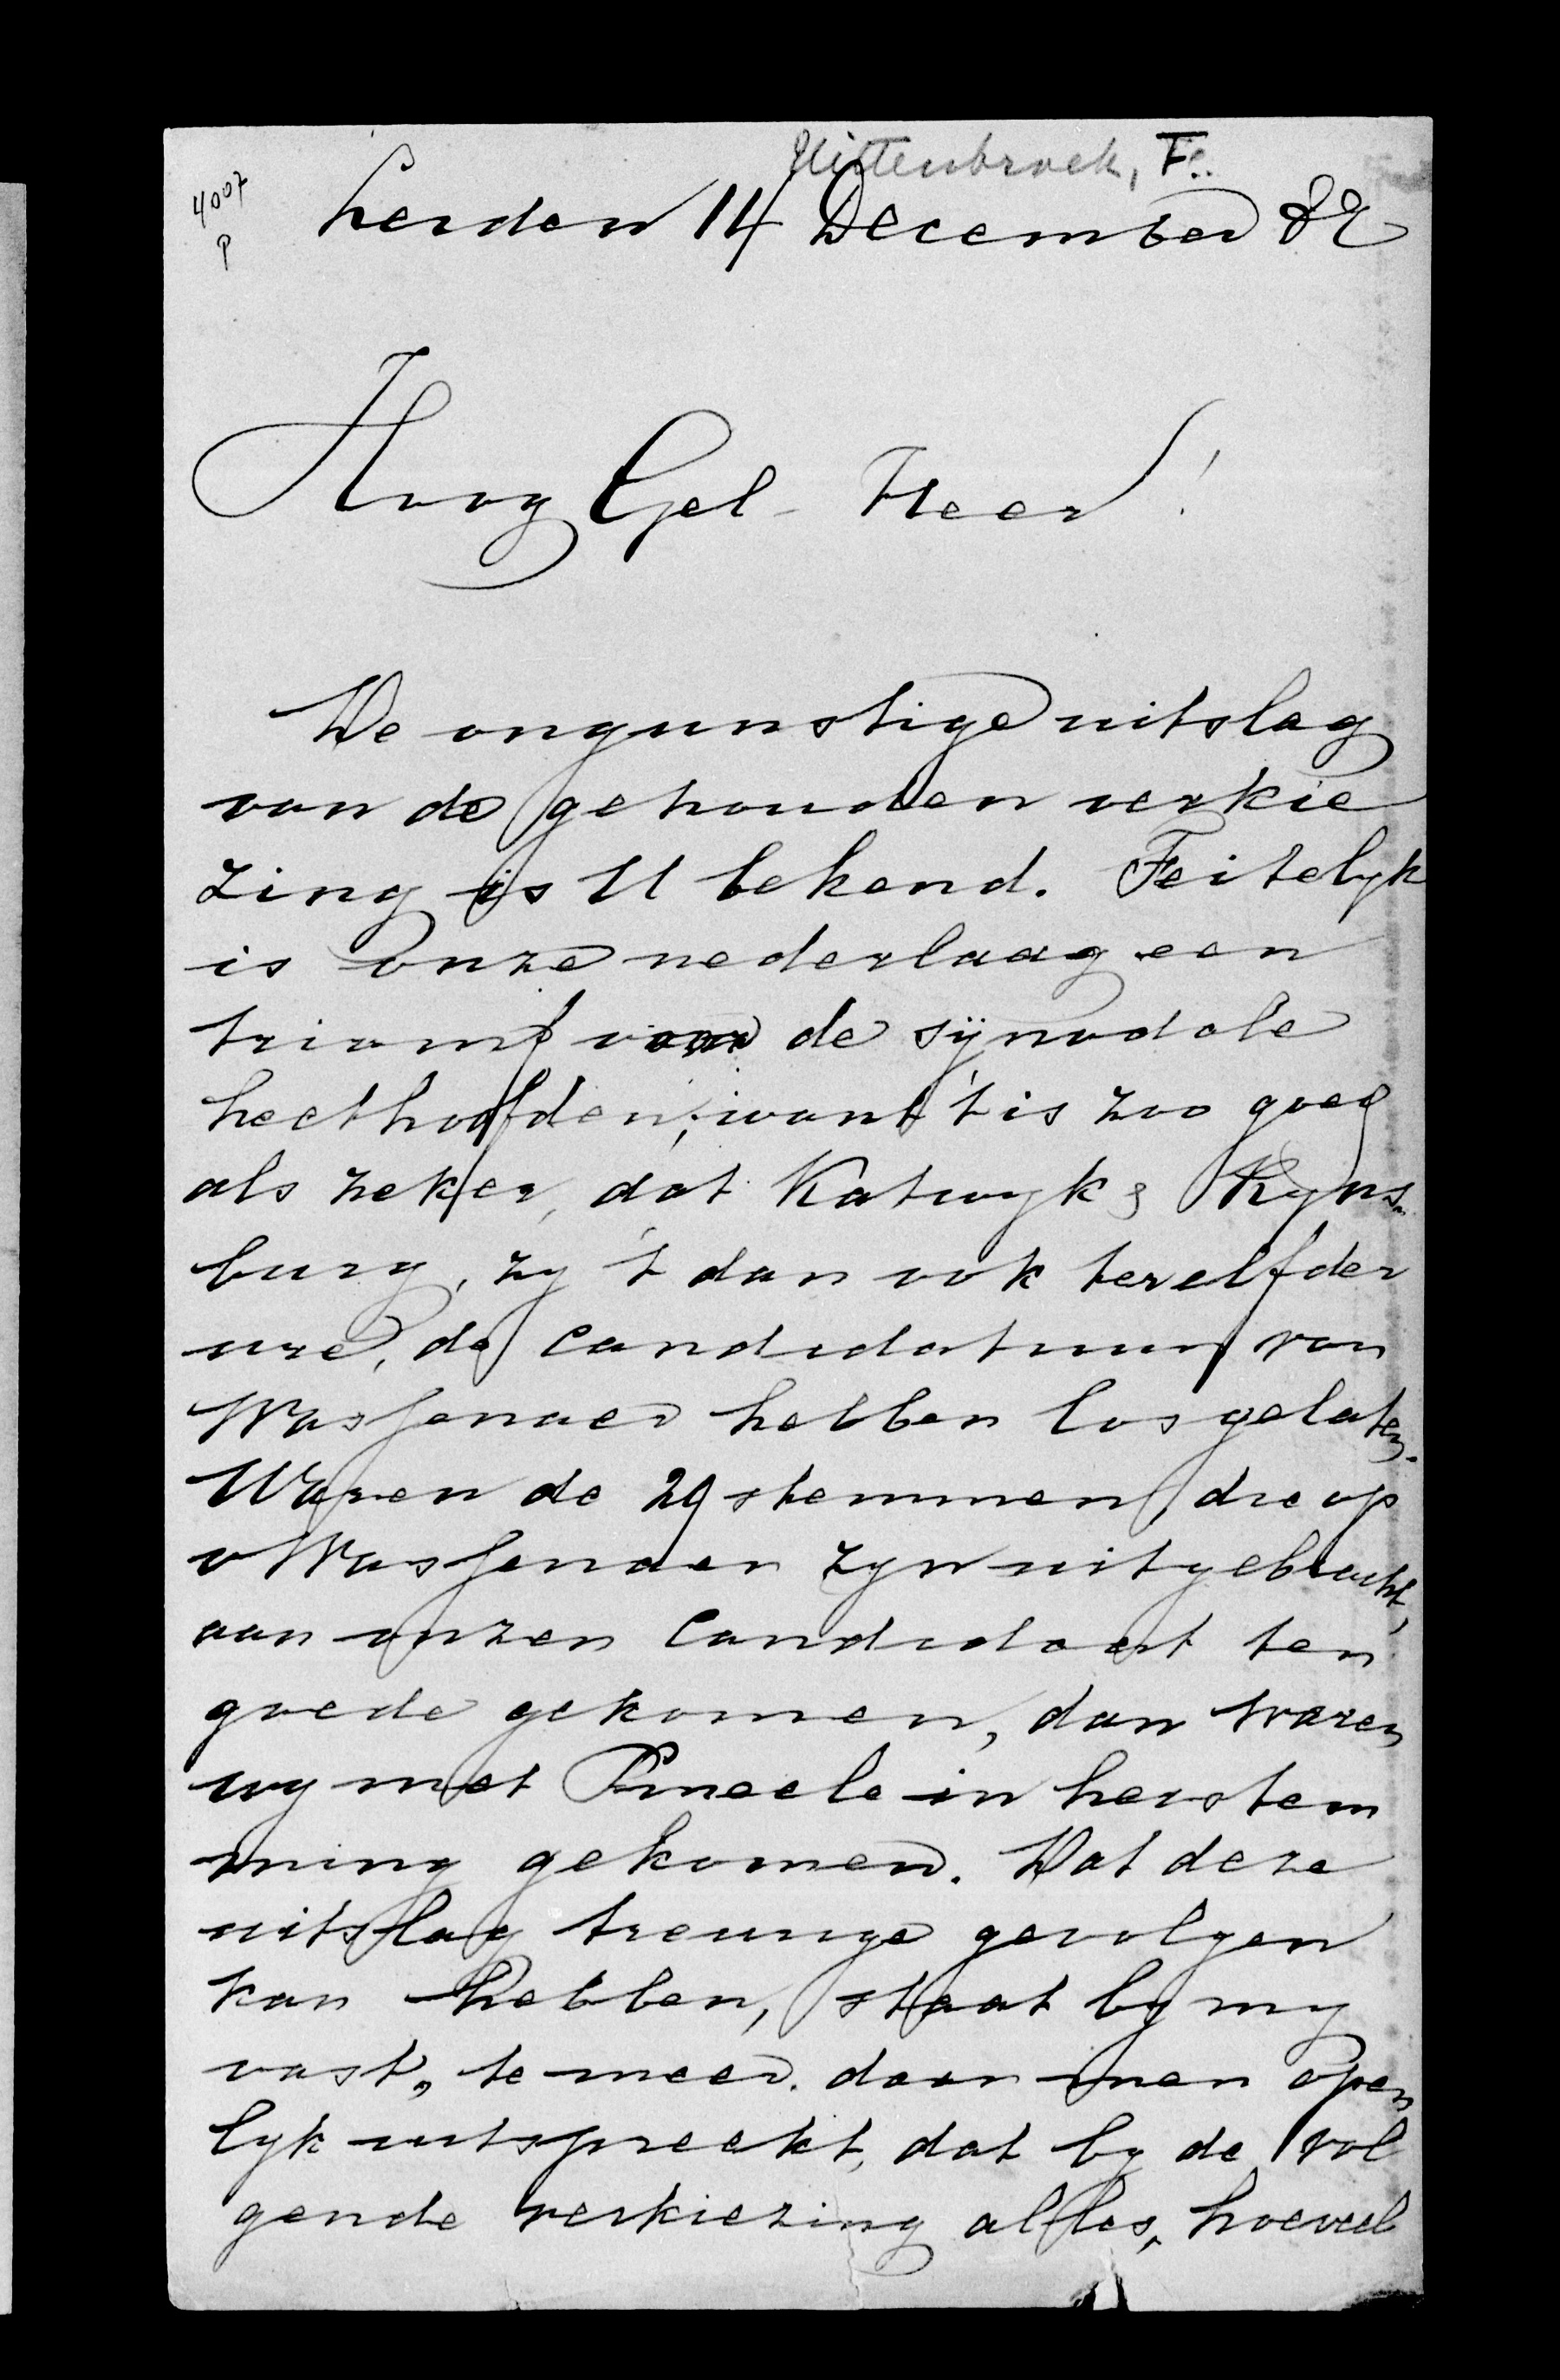 Uittenbroek, F.
4007
P
Leiden 14 December 82
Hoog Gel. Heer!
De ongunstige uitslag
van de gehouden verkie
zing is U bekend. Feitelyk
is onze nederlaag een
triomf voor de sÿnodale
heethoofden; want 't is zoo goed
als zeker, dat Katwyk & Ryns-
burg, zy 't dan ook ter elfder
ure, de candidatuur van
Wassenaer hebben losgelaten.
Waren de 29 stemmen, die op
v Wassenaer zyn uitgebracht,
aan onzen Candidaat ten
goede gekomen, dan waren
wy met in herstem
ming gekomen. Dat deze
uitslag treurige gevolgen
kan hebben, staat by my
vast, te meer. daar men open
lyk uitspreekt, dat by de vol
gende verkiezing alles, hoeveel